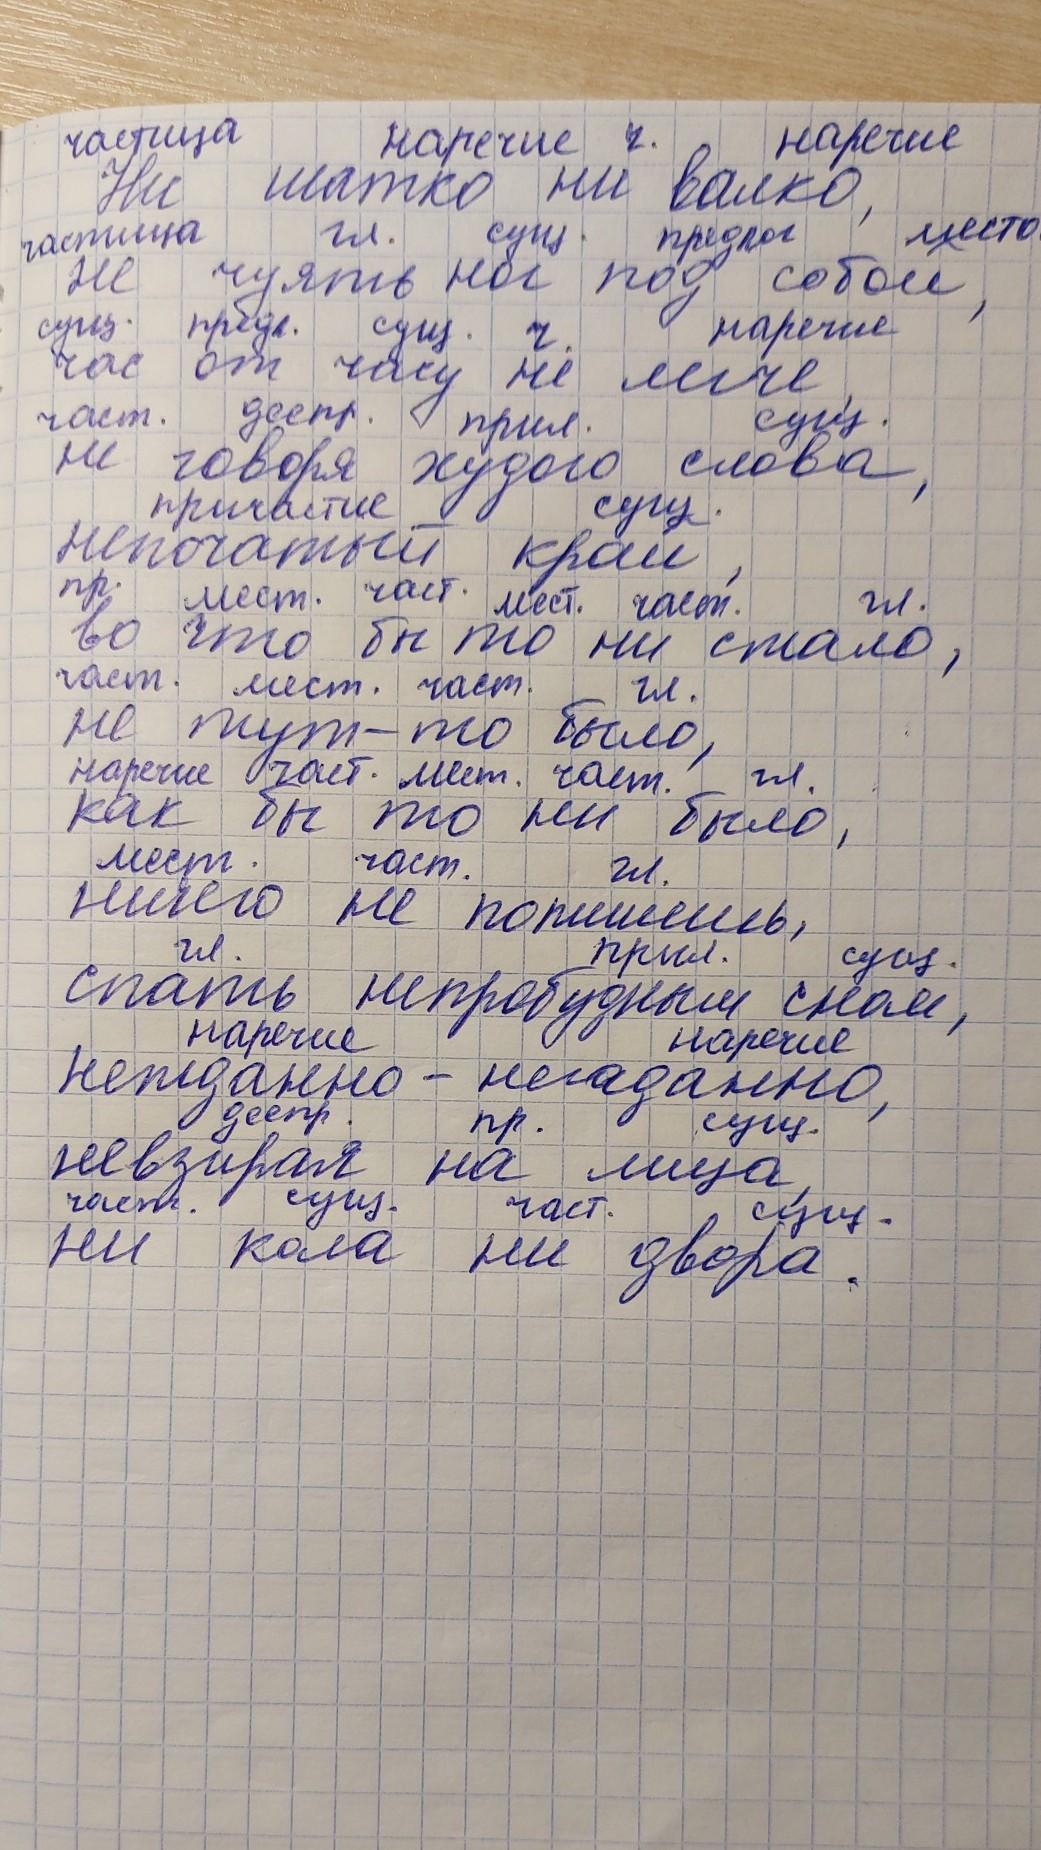 частица наречие ч. наречие
Ни шатко ни валко,
частица гл. сущ. предлог место.
не чуять ног под собой,
сущ. предл. сущ. ч. наречие
час от часу не легче,
част. деепр. прил. сущ.
не говоря худого слова,
причастие сущ.
непочатый край,
пр. мест. част. мест. част. гл.
во что бы то ни стало,
част. мест. част. гл.
не тут-то было,
наречие част. мест. част. гл.
как бы то ни было,
мест. част. гл.
ничего не попишешь,
гл. прил. сущ.
спать непробудным сном,
наречие наречие
нежданно-негаданно,
деепр. пр. сущ.
невзирая на лица,
част. сущ. част. сущ.
ни кола ни двора.